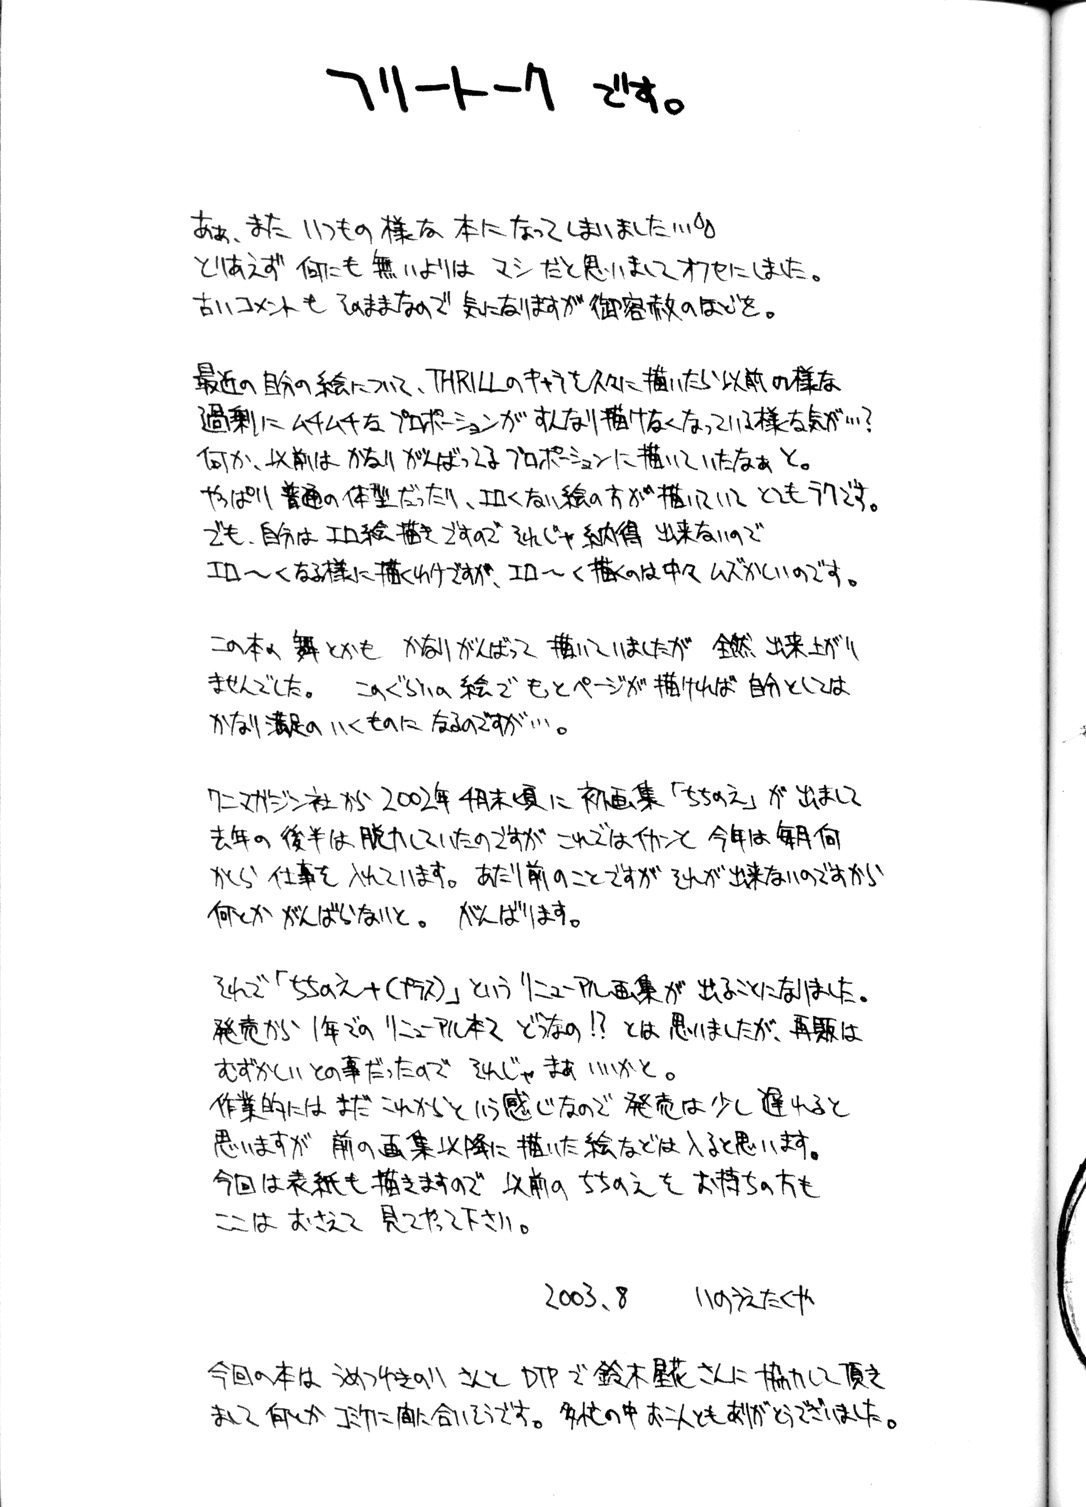 フリートーク です。
あぁ、また いつもの 様な 本に なって しまいました…
とりあえず 何にも 無いよりは マシ だと 思いまして オフセにしました。
古いコメントも そのままなので 気になりますが 御容赦のほどを。
最近の 自分の 絵について、THRILLのキャラを 久々に 描いたら 以前の様な
過剰に ムチムチな プロポーションが すんなり 描けなくなっている 様な気が…?
何か、以前は かなり がんばってる プロポーションに 描いていたなぁ と。
やっぱり 普通の 体型だったり、エロくない 絵の 方が 描いていて とてもラクです。
でも、自分は エロ絵描き ですので それじゃ 納得 出来ないので
エロ〜くなる様に 描くわけですが、エロ〜く 描くのは 中々 ムズかしいのです。
この本の 舞とかも かなり がんばって 描いていましたが 全然 出来上がり
ませんでした。 このぐらいの 絵で もっとページが 描ければ 自分としては
かなり 満足の いくものに なるのですが…。
ワニマガジン社から 2002年 4月末頃に 初画集「ちちのえ」が 出まして
去年の 後半は 脱力していたのですが これではイカンと 今年は 毎月 何
かしら 仕事を 入れています。あたり前のことですが それが 出来ないのですから
何とか がんばらないと。 がんばります。
それで「ちちのえ+(プラス)」という リニューアル画集が 出ることになりました。
発売から 1年での リニューアル本て どうなの!? とは 思いましたが、再販は
むずかしい との事だったので それじゃ まぁ いいかと。
作業的には まだ これからと いう感じなので 発売は 少し 遅れると
思いますが 前の 画集以降に 描いた 絵などは 入ると思います。
今回は 表紙も 描きますので 以前の ちちのえを お持ちの方も
ここは おさえて 見てやって下さい。
2003、8 いのうえたくや
今回の本は うめつゆきのり さんと DTPで 鈴木星花さんに 協力して 頂き
まして 何とか コミケに 間に合いそうです。多忙の中 お二人とも ありがとうございました。